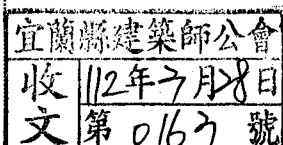 宜蘭縣建築師公會
收文
112年3月28日
第0163號